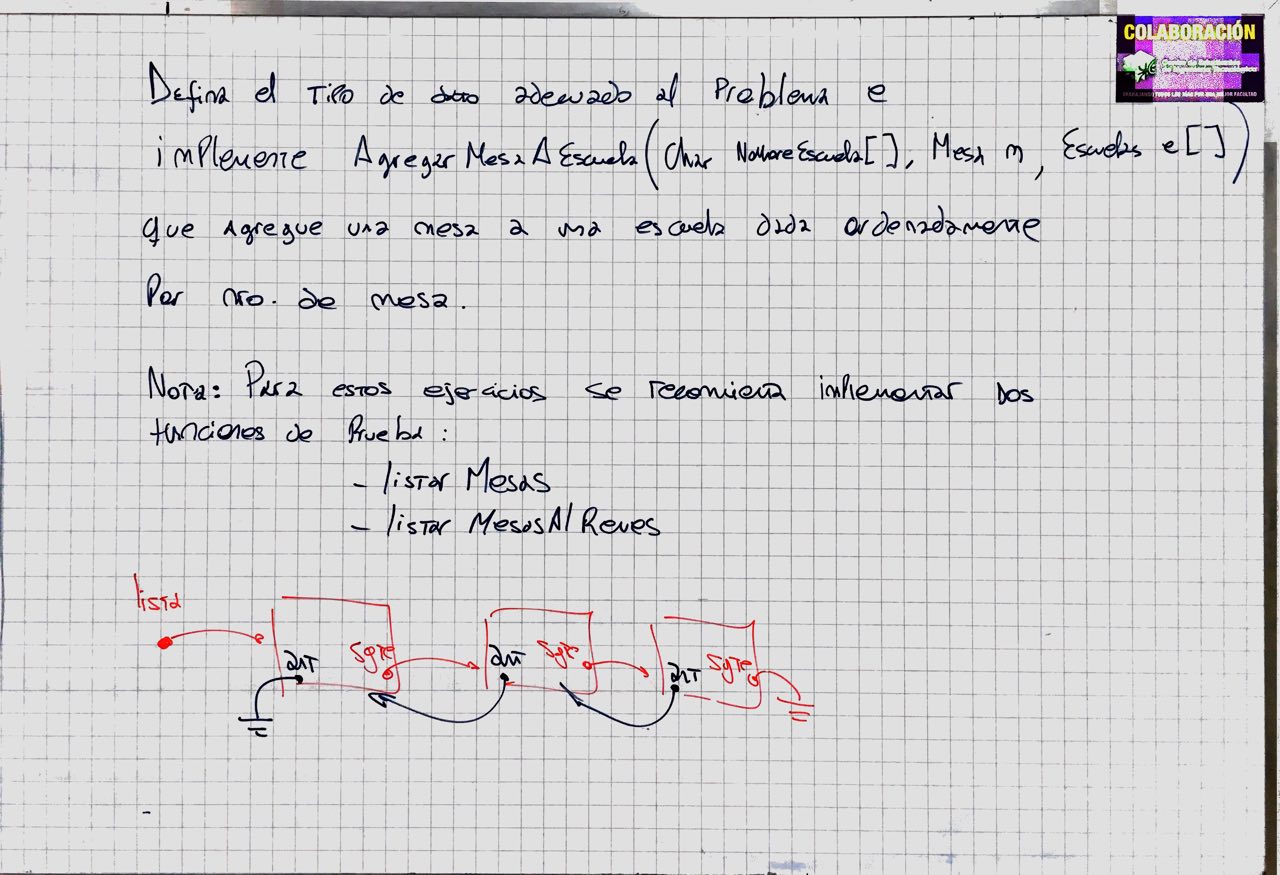 COLABORACIÓN
Defina el tipo de dato adecuado al Problema e
implemente AgregarMesaAEscuela(Char NombreEscuela[], Mesa m, Escuelas e[])
que Agregue una mesa a una escuela dada ordenadamente
Por nro. de mesa.
Nota: Para estos ejercicios se recomienda implementar dos
funciones de Prueba:
- listar Mesas
- listar MesasAlReves
lista
ant Sgte ant Sgte ant Sgte